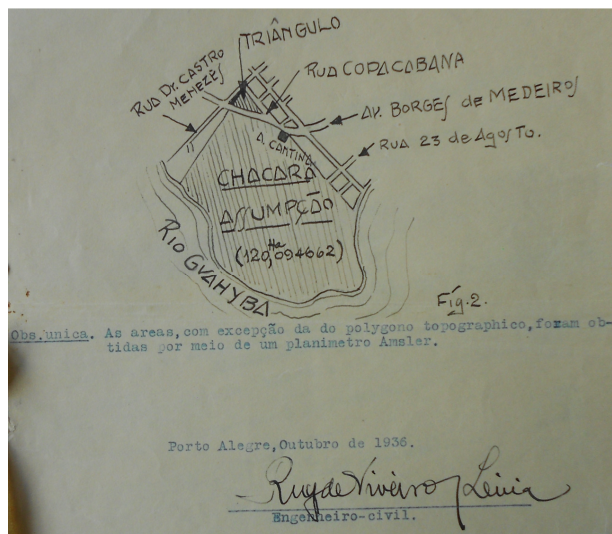 TRIÂNGULO
RUA Dr. CASTRO
MENEZES
RUA COPACABANA
AV. BORGES de MEDEIROS
RUA 23 de AGOSTO.
A. CANTINA
CHACARA
ASSUMPÇÃO
(120,Ha 094662)
RIO GUAHYBA
Fig.2.
Obs.unica. As areas,com excepção da do polygono topographico,foram ob-
tidas por meio de um planimetro Amsler.
Porto Alegre,Outubro de 1936.
Ruy de Viveiros Leiria
Engenheiro-civil.